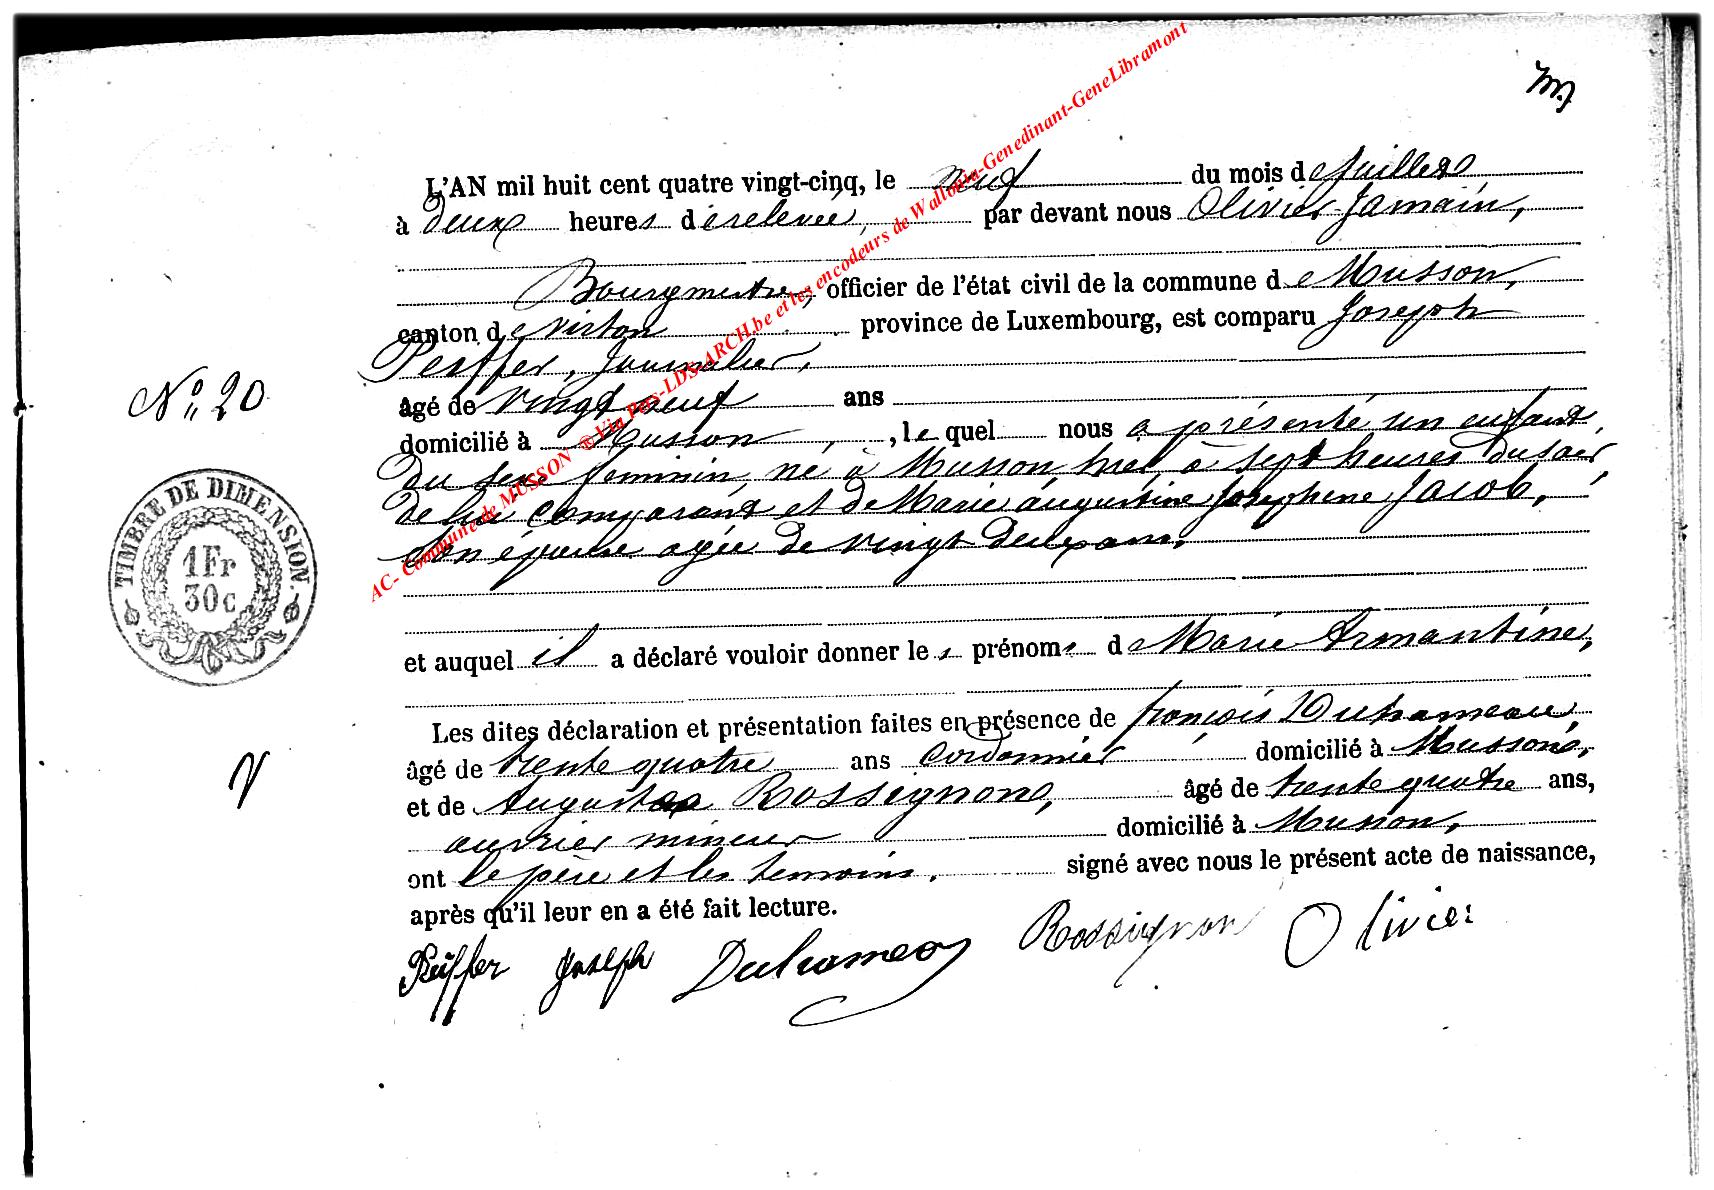 L'AN mil huit cent quatre vingt-cinq, le neuf du mois de Juillet
à deux heures de relevée, par devant nous Olivier Jamain,
Bourgmestre, officier de l'état civil de la commune de Musson,
canton de Virton province de Luxembourg, est comparu Joseph
Peiffer, Journalier,
âgé de vingt neuf ans
N° 20
domicilié à Musson, le quel nous a présenté un enfant
du sexe feminin, né à Musson, hier, à sept heures du soir,
de lui comparant et de Marie Augustine Josephine Jacob,
son épouse agée de vingt deux ans.
TIMBRE DE DIMENSION.
1 Fr
30 c
et auquel il a déclaré vouloir donner les prénoms de Marie Armantine,
Les dites déclaration et présentation faites en présence de françois Duhameau,
âgé de trente quatre ans cordonnier domicilié à Musson,
et de Auguste Rossignon, âgé de trente quatre ans,
ouvrier mineur domicilié à Musson,
ont le père et les temoins. signé avec nous le présent acte de naissance,
après qu'il leur en a été fait lecture.
Peiffer Joseph Duhameau Rossignon Olivier
AC- Commune de MUSSON ® Via Pros-LDS-ARCH.be et les encodeurs de Wallonia-Genedinant-GeneLibramont